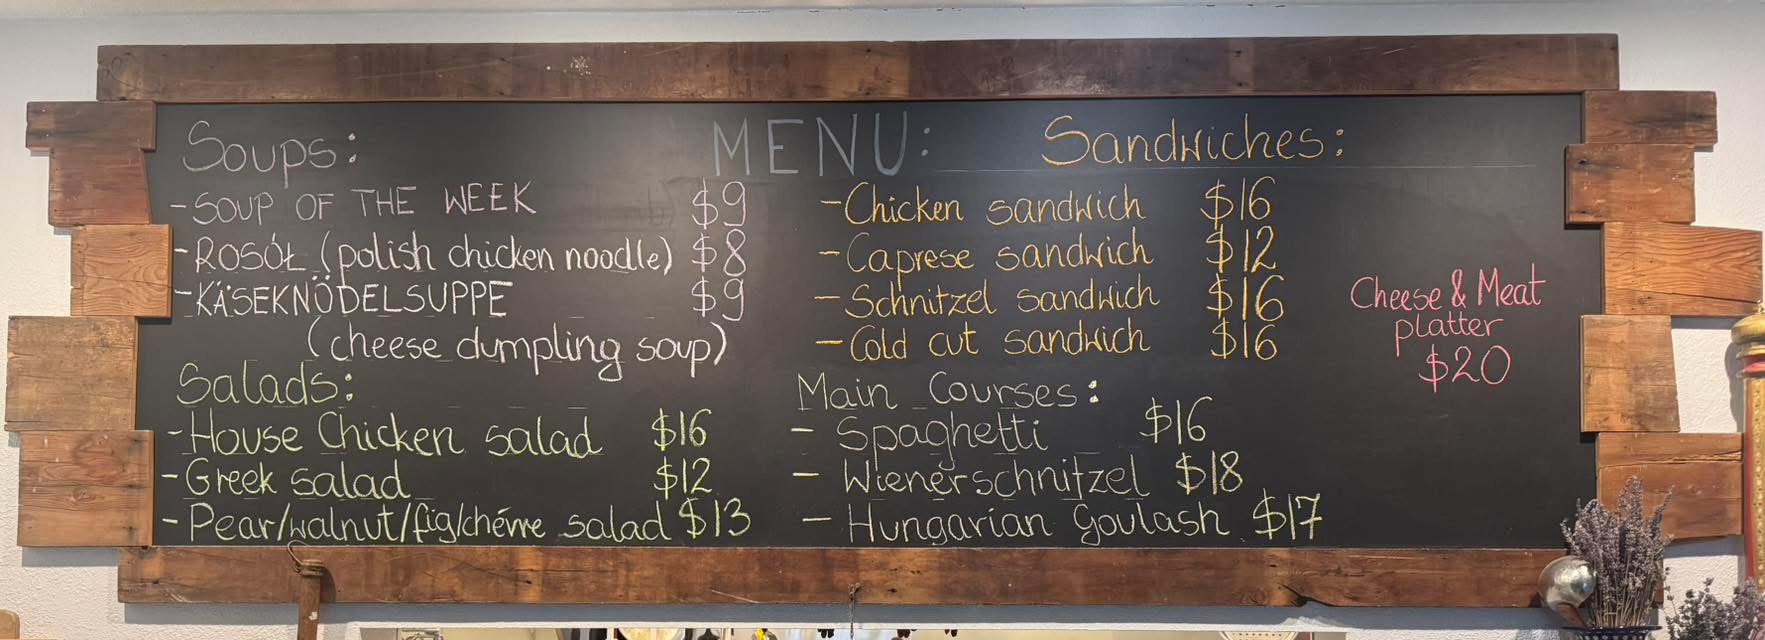 MENU:
Soups:
-SOUP OF THE WEEK $9
-ROSÓŁ (polish chicken noodle) $8
-KÄSEKNÖDELSUPPE $9
(cheese dumpling soup)
Salads:
-House Chicken salad $16
-Greek salad $12
-Pear/walnut/fig/chévre salad $13
Sandwiches:
-Chicken sandwich $16
-Caprese sandwich $12
-Schnitzel sandwich $16
-Cold cut sandwich $16
Main Courses:
- Spaghetti $16
- Wienerschnitzel $18
- Hungarian Goulash $17
Cheese & Meat
platter
$20